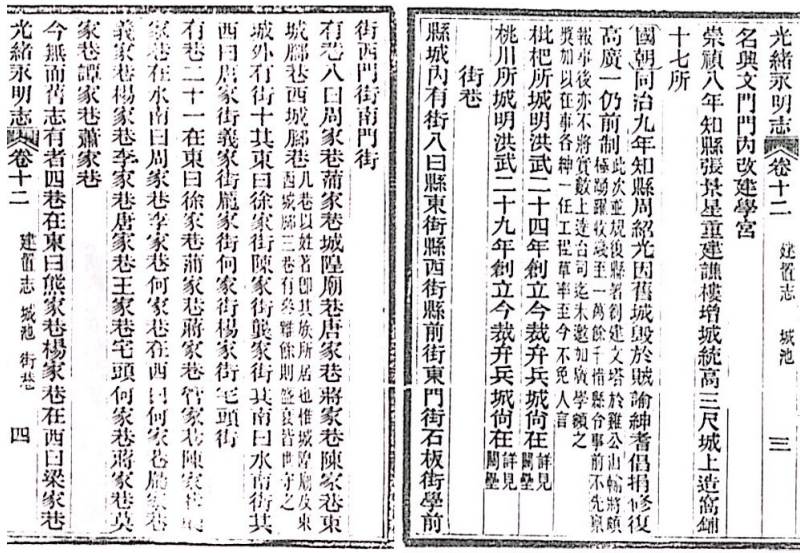 光緒永明志 卷十二 建置志 城池 三
名興文門門內改建學宮
崇禎八年知縣張景星重建譙樓增城統高三尺城上造窩鋪
十七所
國朝同治九年知縣周紹光因舊城毀於賊諭紳耆倡捐修復
高廣一仍前制此次並規復縣署創建文塔於雞公山輸將頗
極踴躍收錢至一萬餘千惜縣令事前不先稟
報事後亦不將實數上達台司迄未邀加廣學額之
獎加以在事各紳一任工程草率至今不免人言
枇杷所城明洪武二十四年創立今裁弁兵城尙在詳見
關壘
桃川所城明洪武二十九年創立今裁弁兵城尙在詳見
關壘
街巷
縣城內有街八曰縣東街縣西街縣前街東門街石板街學前
街西門街南門街
有巷八曰周家巷蒲家巷城隍廟巷唐家巷蔣家巷陳家巷東
城腳巷西城腳巷凡巷以姓著卽其族所居也惟城隍廟及東
西城腳三巷有參雜餘則盛衰皆世守之
城外有街十其東曰徐家街陳家街龔家街其南曰水南街其
西曰唐家街義家街龐家街何家街楊家街宅頭街
有巷二十一在東曰徐家巷蒲家巷蔣家巷管家巷陳家巷
家巷在水南曰周家巷李家巷何家巷在西曰何家巷龐家巷
義家巷楊家巷李家巷唐家巷王家巷宅頭何家巷蔣家巷吳
家巷譚家巷蕭家巷
今無而舊志有者四巷在東曰熊家巷楊家巷在西曰梁家巷
光緒永明志 卷十二 建置志 城池 街巷 四